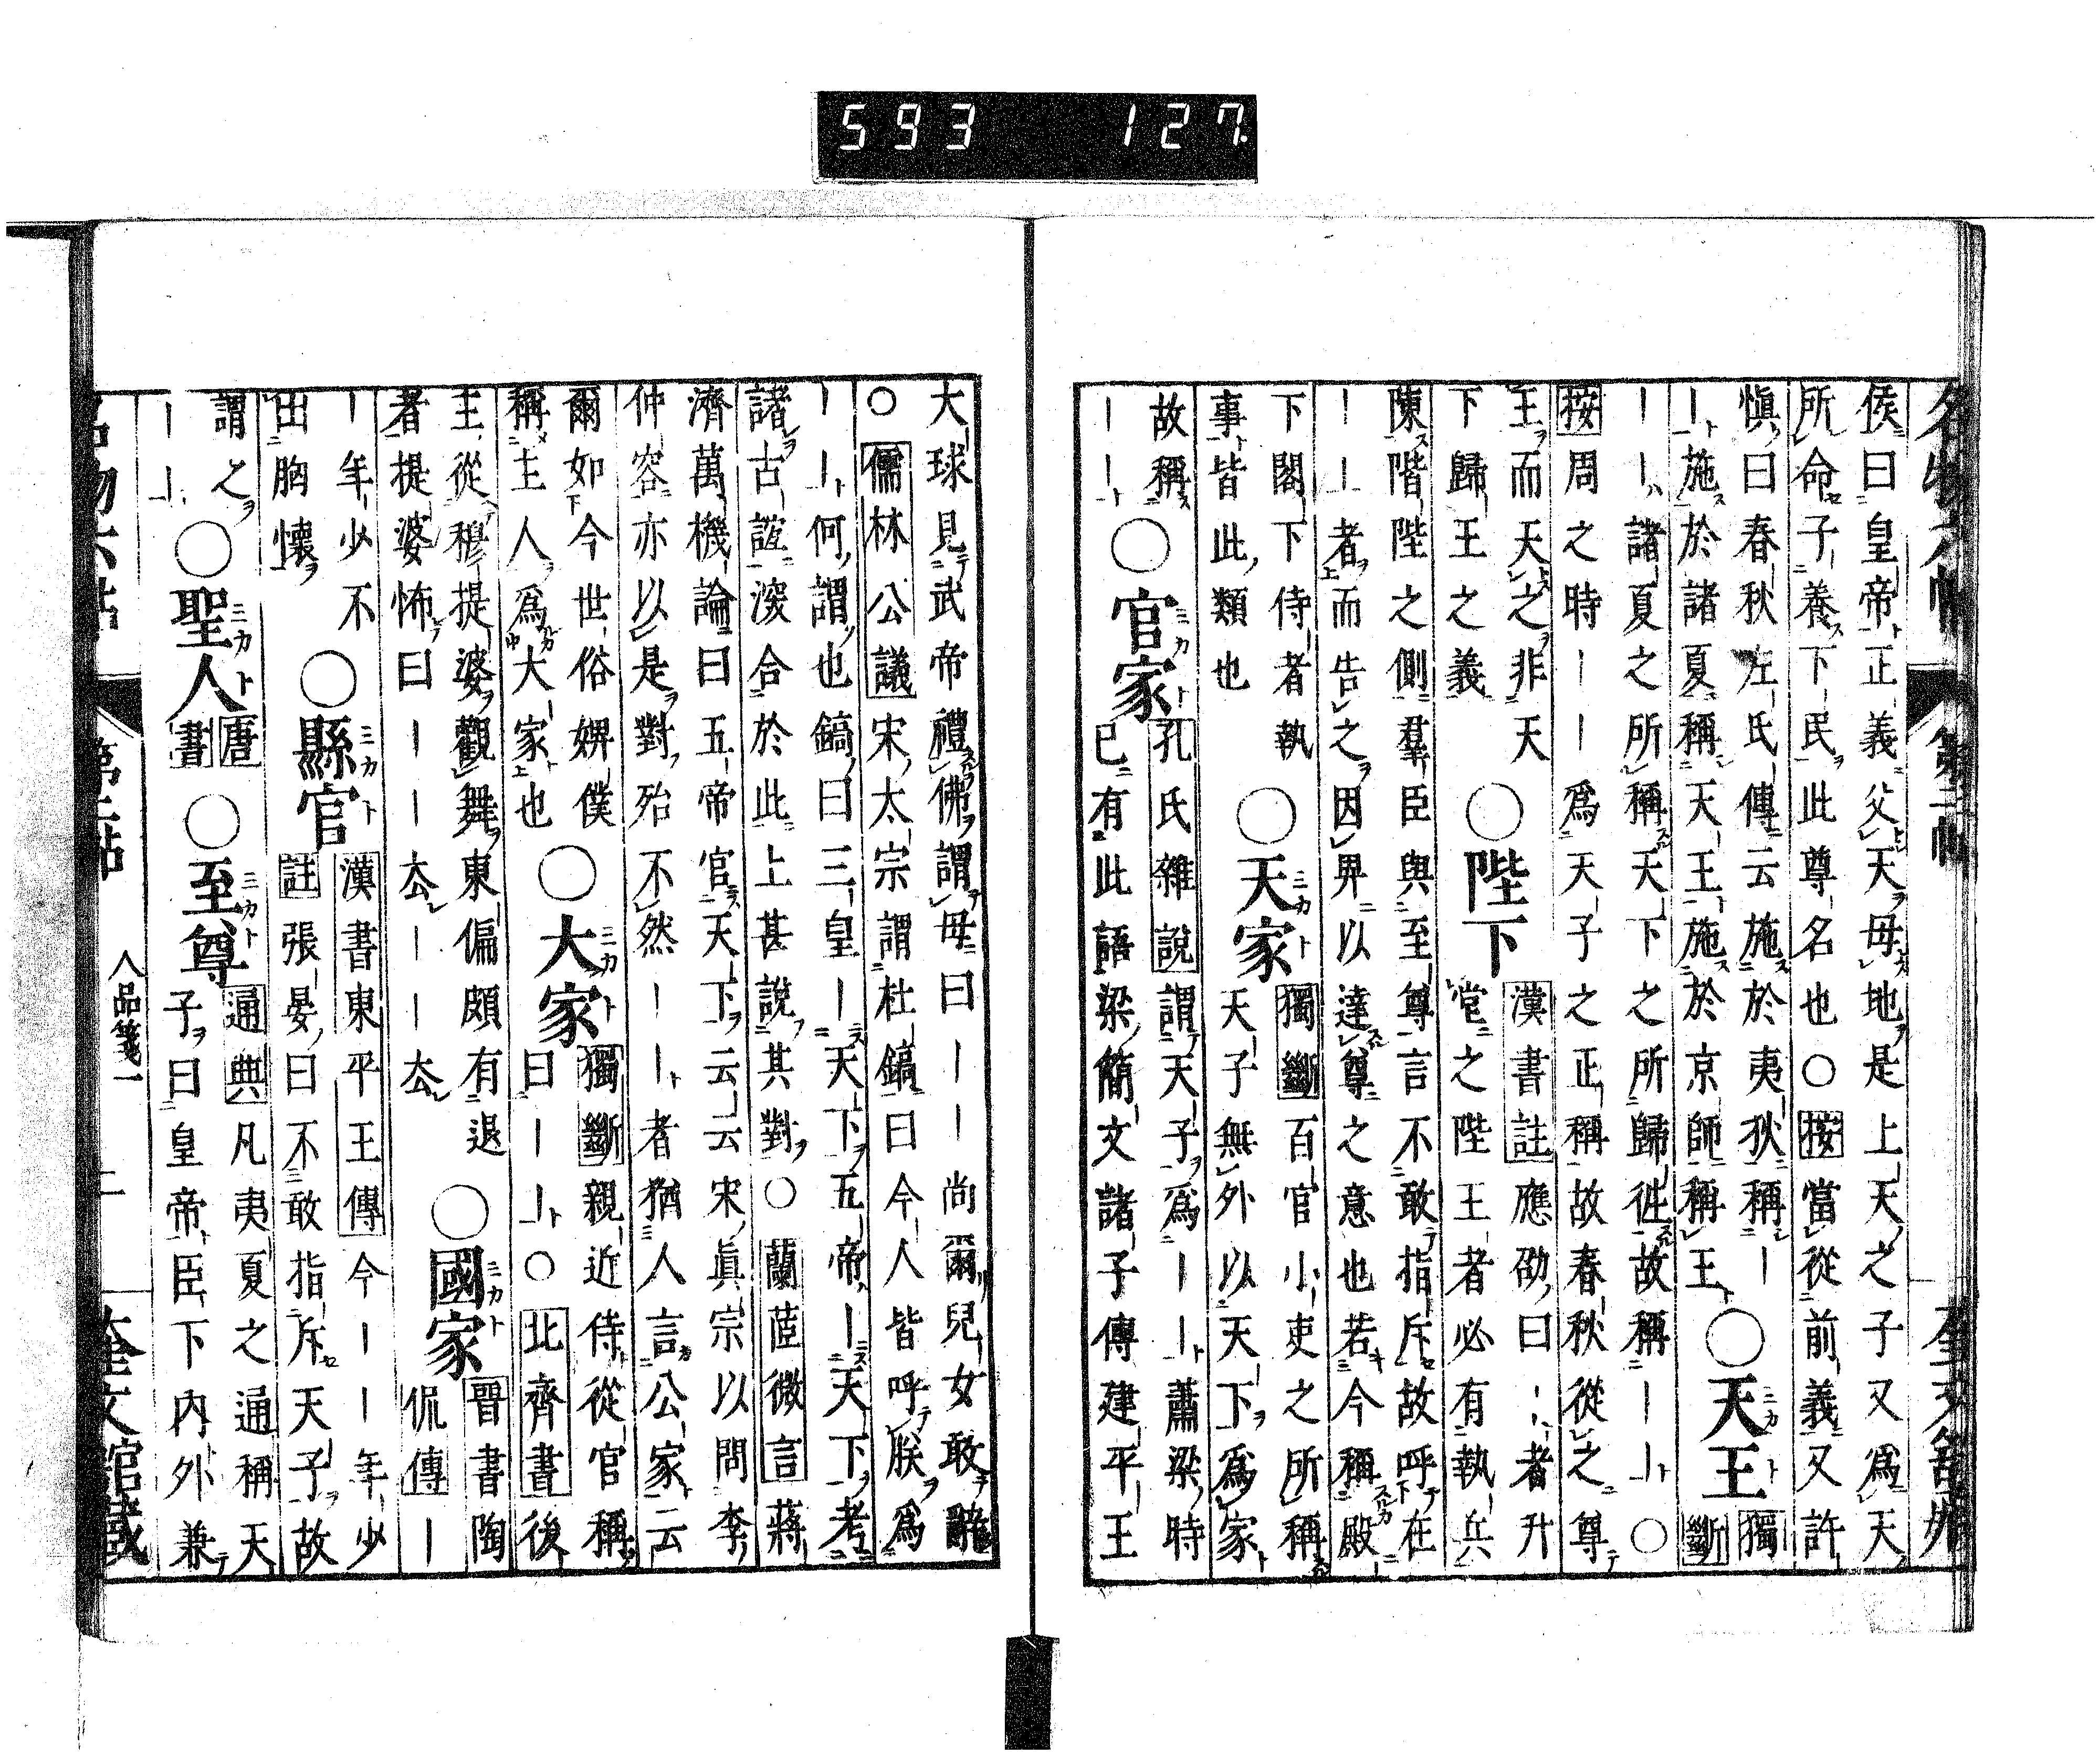 593 127
侯曰皇帝正義父天母地是上天之子又爲天
所命子養下民此尊名也○按當從前義又許
愼曰春秋左氏傳云施於夷狄稱｜
｜施於諸夏稱天王施於京師稱王
○天王
獨
斷
｜｜諸夏之所稱天下之所歸徃故稱｜｜○
按周之時｜｜爲天子之正稱故春秋從之尊
王而天之非天
下歸王之義
○陛下
漢書註應劭曰｜｜者升
堂之陛王者必有執兵
陳階陛之側羣臣與至尊言不敢指斥故呼在
｜｜者而告之因卑以達尊之意也若今稱殿
下閣下侍者執
事皆此類也
○天家
獨斷百官小吏之所稱
天子無外以天下爲家
故稱
｜｜
○官家
孔氏雜說謂天子爲｜｜蕭梁時
已有此語梁簡文諸子傳建平王
大球見武帝禮佛謂母曰｜｜尚爾兒女敢辭
○儒林公議宋太宗謂杜鎬曰今人皆呼朕爲
｜｜何謂也鎬曰三皇｜天下五帝｜天下考
諸古誼深合於此上甚說其對○蘭莅微言蔣
濟萬機論曰五帝官天下云云宋眞宗以問李
仲容亦以是對殆不然｜｜者猶人言公家云
爾如今世俗婢僕
稱主人爲大家也
○大家
獨斷親近侍從官稱
曰｜｜○北齊書後
主從穆提婆觀舞東偏頗有退
者提婆怖曰｜｜厺｜｜厺
○國家
晉書陶
侃傳｜
｜年少不
出胸懷
○縣官
漢書東平王傳今｜｜年少
註張晏曰不敢指斥天子故
謂之
｜｜
○聖人
唐
書
○至尊
通典凡夷夏之通稱天
子曰皇帝臣下內外兼
人品箋一
奎文館藏